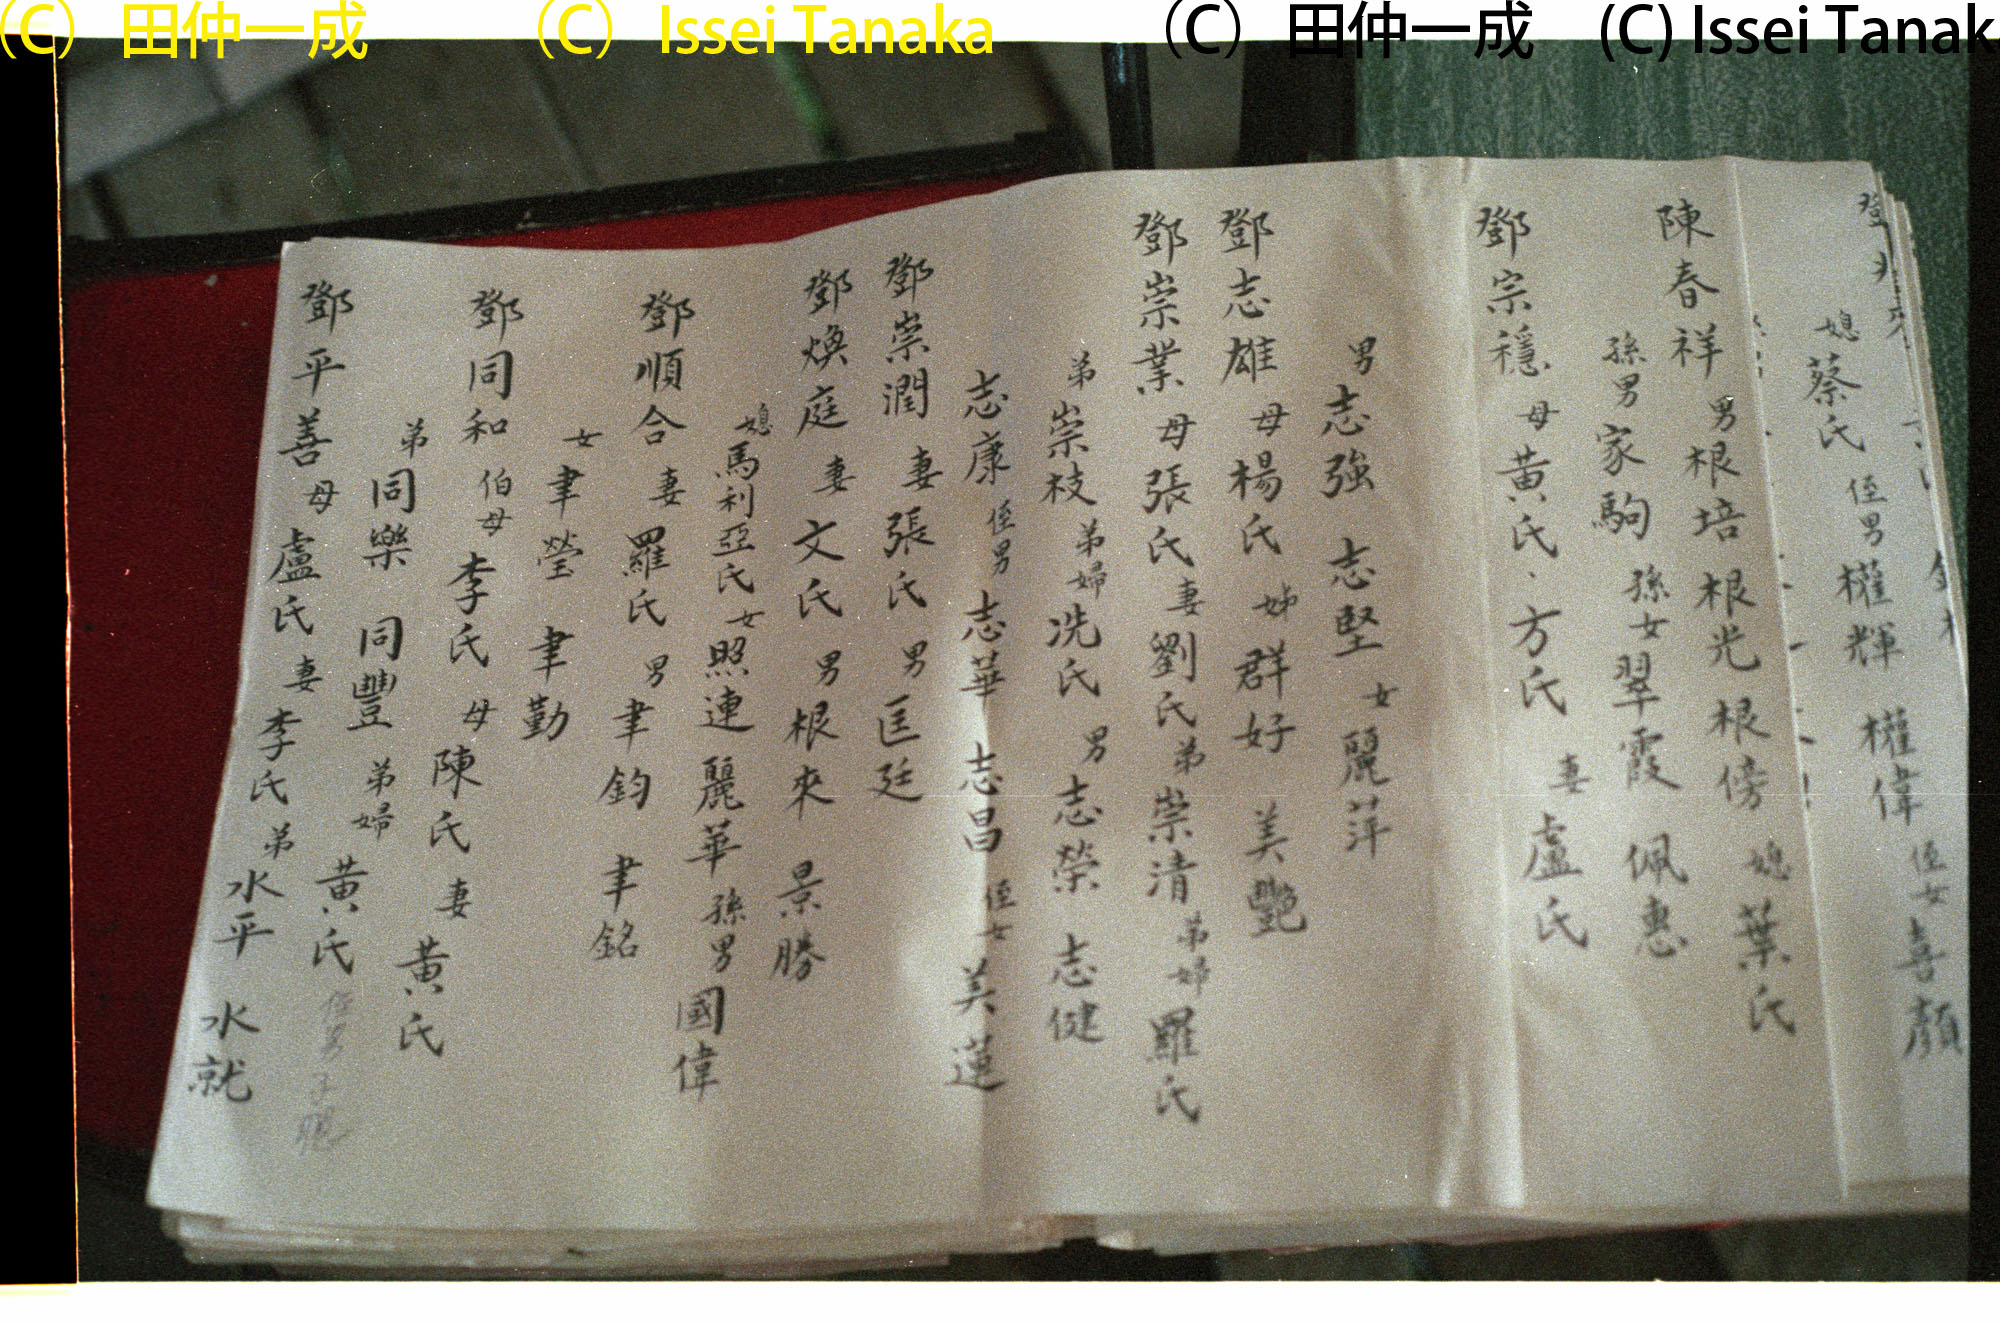 (C) 田仲一成 (C) Issei Tanaka (C) 田仲一成 (C) Issei Tanak
媳蔡氏 侄男權輝 權偉 侄女喜顏
陳春祥 男根培 根光 根傍 媳葉氏
孫男家駒 孫女翠霞 佩惠
鄧宗穩 母黃氏、方氏 妻盧氏
男志強 志堅 女麗萍
鄧志雄 母楊氏 姊群好 美艷
鄧崇業 母張氏 妻劉氏 弟崇清 弟婦羅氏
弟崇枝 弟婦冼氏 男志榮 志健
志康 侄男志華 志昌 侄女美蓮
鄧崇潤 妻張氏 男匡廷
鄧煥庭 妻文氏 男根來 景勝
媳馬利亞氏 女照連 麗華 孫男國偉
鄧順合 妻羅氏 男聿鈞 聿銘
女聿瑩 聿勤
鄧同和 伯母李氏 母陳氏 妻黃氏
弟同樂 同豐 弟婦黃氏 侄男子
鄧平善 母盧氏 妻李氏 弟水平 水就